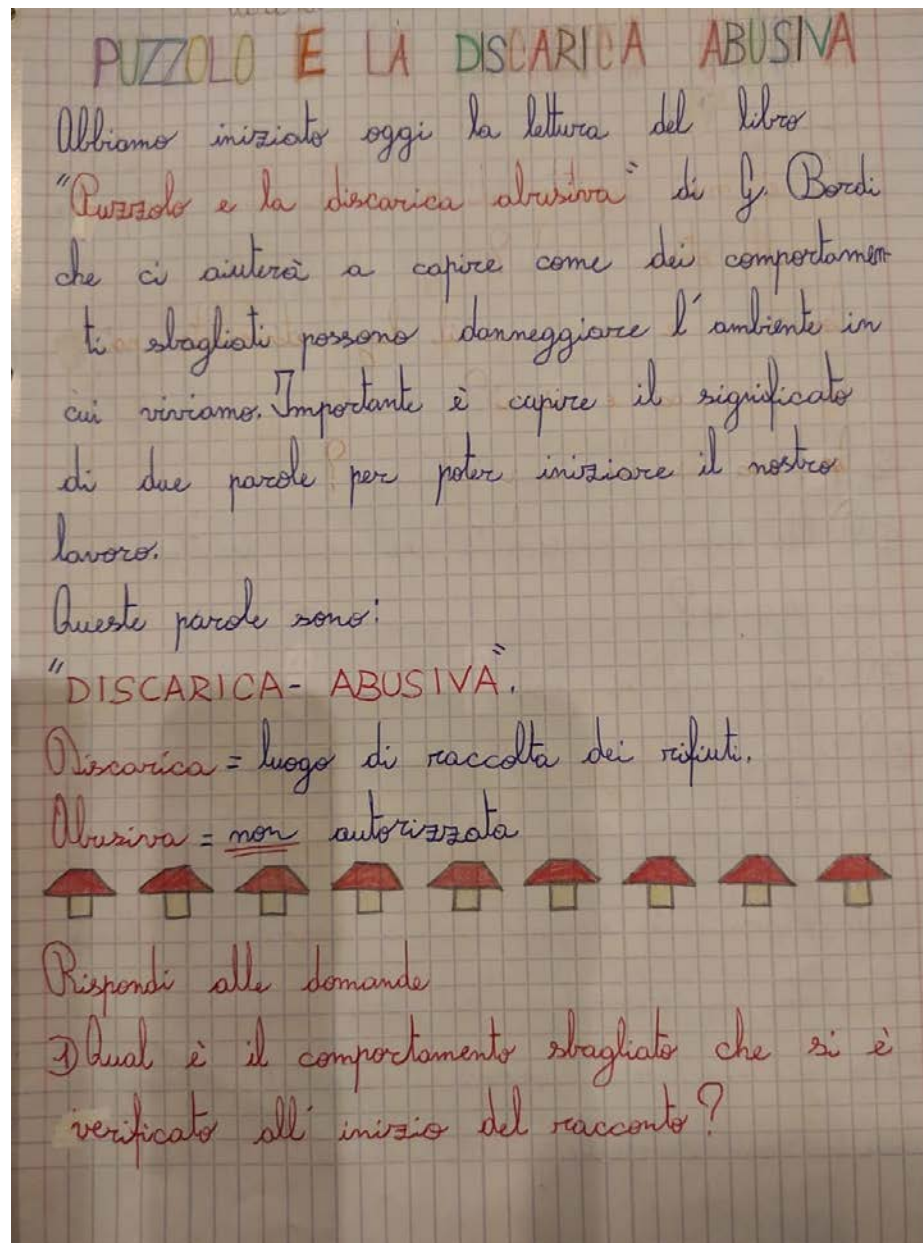 PUZZOLO E LA DISCARICA ABUSIVA
Abbiamo iniziato oggi la lettura del libro
"Puzzolo e la discarica abusiva" di G. Bordi
che ci aiuterà a capire come dei comportamen-
ti sbagliati possono danneggiare l'ambiente in
cui viviamo. Importante è capire il significato
di due parole per poter iniziare il nostro
lavoro.
Queste parole sono:
"DISCARICA- ABUSIVA".
Discarica = luogo di raccolta dei rifiuti.
Abusiva = non autorizzata
Rispondi alle domande
1) Qual è il comportamento sbagliato che si è
verificato all'inizio del racconto?